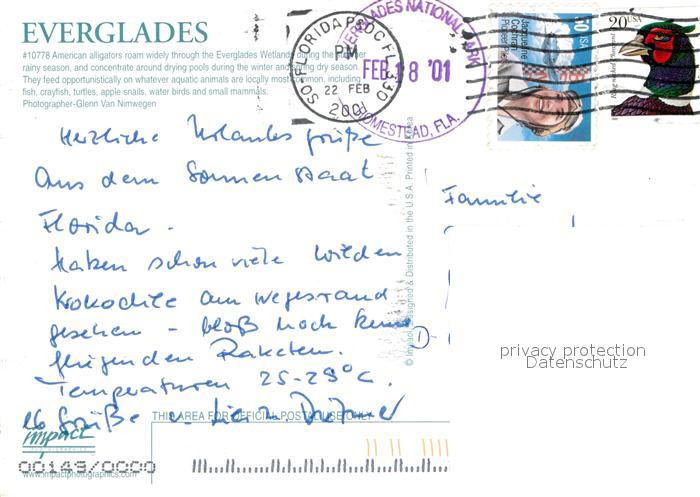 EVERGLADES
#10778 American alligators roam widely through the Everglades Wetlands during the summer
rainy season, and concentrate around drying pools during the winter and spring dry season.
They feed opportunistically on whatever aquatic animals are locally most common, including
fish, crayfish, turtles, apple snails, water birds and small mammals.
Photographer-Glenn Van Nimwegen
SO FLORIDA P&DC FL 330
PM
22 FEB
2001
EVERGLADES NATIONAL PARK
FEB 18 '01
HOMESTEAD, FLA.
50 USA
Jacqueline
Cochran
Pioneer Pilot
20 USA
Herzliche Urlaubsgrüße
Aus dem Sonnenstaat
Florida.
Haben schon viele wilden
Krokodile am Wegesrand
gesehen - bloß noch keine
fliegenden Raketen.
Temperaturen 25-29°C.
Grüße
Familie
© Impact, Designed & Distributed in the U.S.A. Printed in Korea
privacy protection
Datenschutz
THIS AREA FOR OFFICIAL POSTAL USE ONLY
impact
00149/0000
www.impactphotographics.com